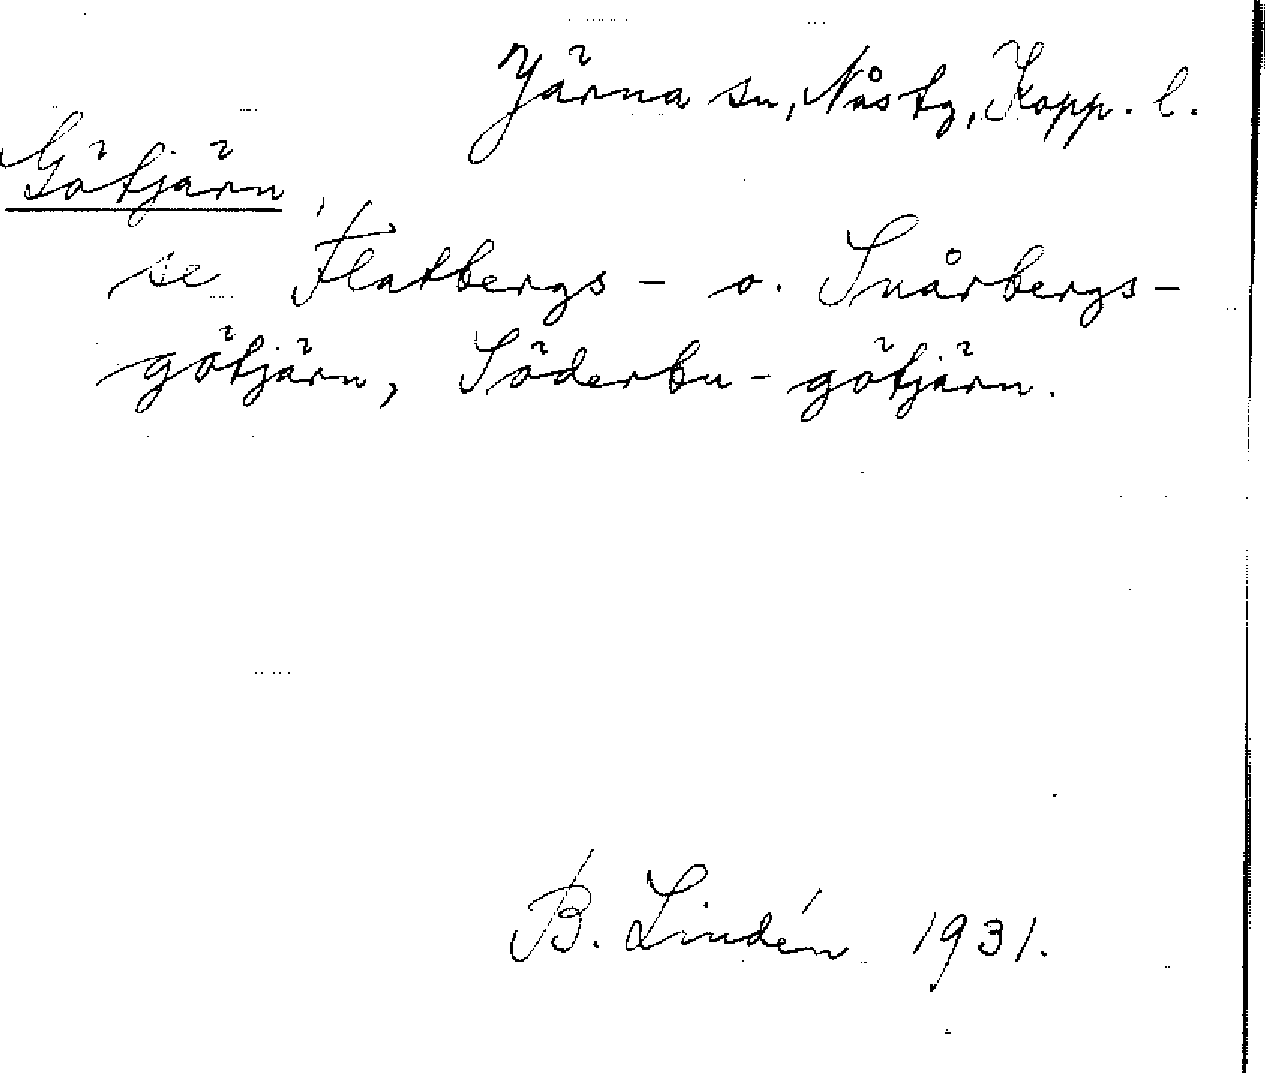 Järna sn, Nås tg, Kopp. l.
Götjärn
se Flatbergs- o. Snårbergs-
götjärn, Söderbu-götjärn.
B. Lindén 1931.